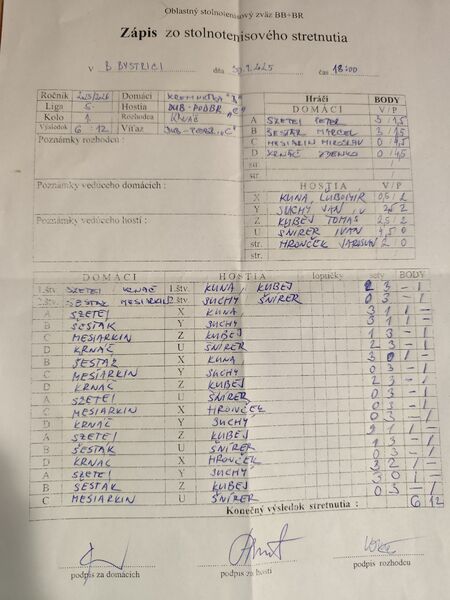 Oblastný stolnotenisový zväz BB+BR
Zápis zo stolnotenisového stretnutia
v B BYSTRICI dňa čas 18:00
Ročník 2025/2026 Domáci KREMNIČKA "B"
Liga 5. Hostia DUB-PODBR "C"
Kolo 1 Rozhodca KRNÁČ
Výsledok 6 : 12 Víťaz DUB-PODBR "C"
Poznámky rozhodcu :
Poznámky vedúceho domácich :
Poznámky vedúceho hostí :
Hráči BODY
DOMÁCI V/P
A SZETEI PETER 3/1,5
B ŠESTÁK MARCEL 3/1,5
C MESIARKIN MIROSLAV 0/4,5
D KRNÁČ ZDENKO 0/4,5
str.
str /
HOSTIA V/P
X KUNA, ĽUBOMÍR 0,5/2
Y SUCHÝ JÁN 2
Z KUBEJ TOMÁŠ 2,5/2
U ŠNIRER IVAN 4,5 0
str. HRONČEK JAROSLAV 2 0
DOMÁCI HOSTIA loptičky sety BODY
1.štv. SZETEI KRNÁČ 1.štv. KUNA, KUBEJ 2 3 – 1
2.štv. ŠESTÁK MESIARKIN 2.štv. SUCHÝ ŠNIRER 0 3 – 1
A SZETEI X KUNA 3 1 1 –
B ŠESTÁK Y SUCHÝ 3 1 1 –
C MESIARKIN Z KUBEJ 0 3 – 1
D KRNÁČ U ŠNIRER 2 3 – 1
B ŠESTÁK X KUNA 3 0 1 –
C MESIARKIN Y SUCHÝ 0 3 – 1
D KRNÁČ Z KUBEJ 2 3 – 1
A SZETEI U ŠNIRER 0 3 – 1
C MESIARKIN X HRONČEK 0 3 – 1
D KRNÁČ Y SUCHÝ 0 3 – 1
A SZETEI Z KUBEJ 1 1 –
B ŠESTÁK U ŠNIRER 1 3 – 1
D KRNÁČ X HRONČEK 0 3 – 1
A SZETEI Y SUCHÝ 3 2 1 –
B ŠESTÁK Z KUBEJ 3 0 1 –
C MESIARKIN U ŠNIRER 0 3 – 1
Konečný výsledok stretnutia : 6 12
podpis za domácich podpis za hostí podpis rozhodcu